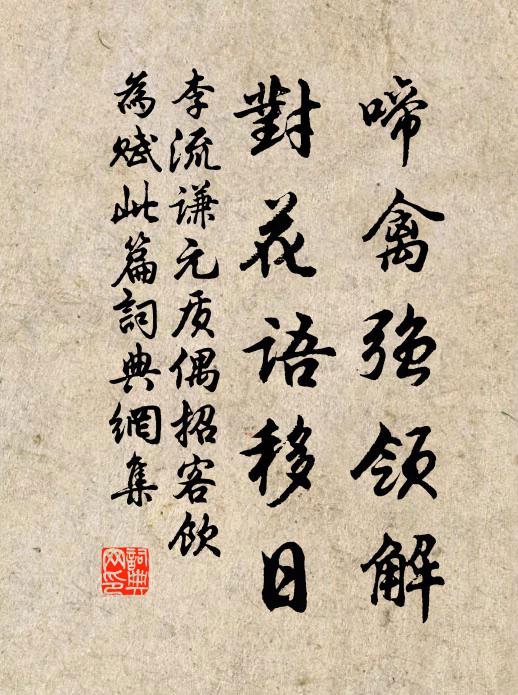 啼禽強領解
對花語移日
李流谦元质偶招客飲
為賦此篇詞典網集
詞典网印